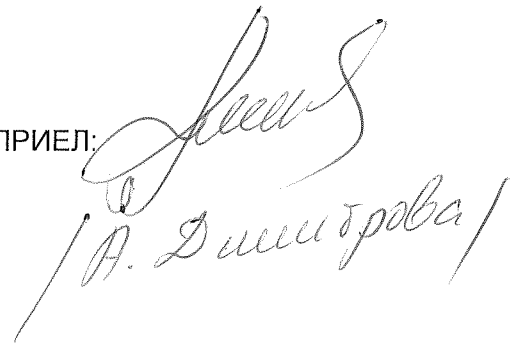 ПРИЕЛ:
/А. Димитрова/